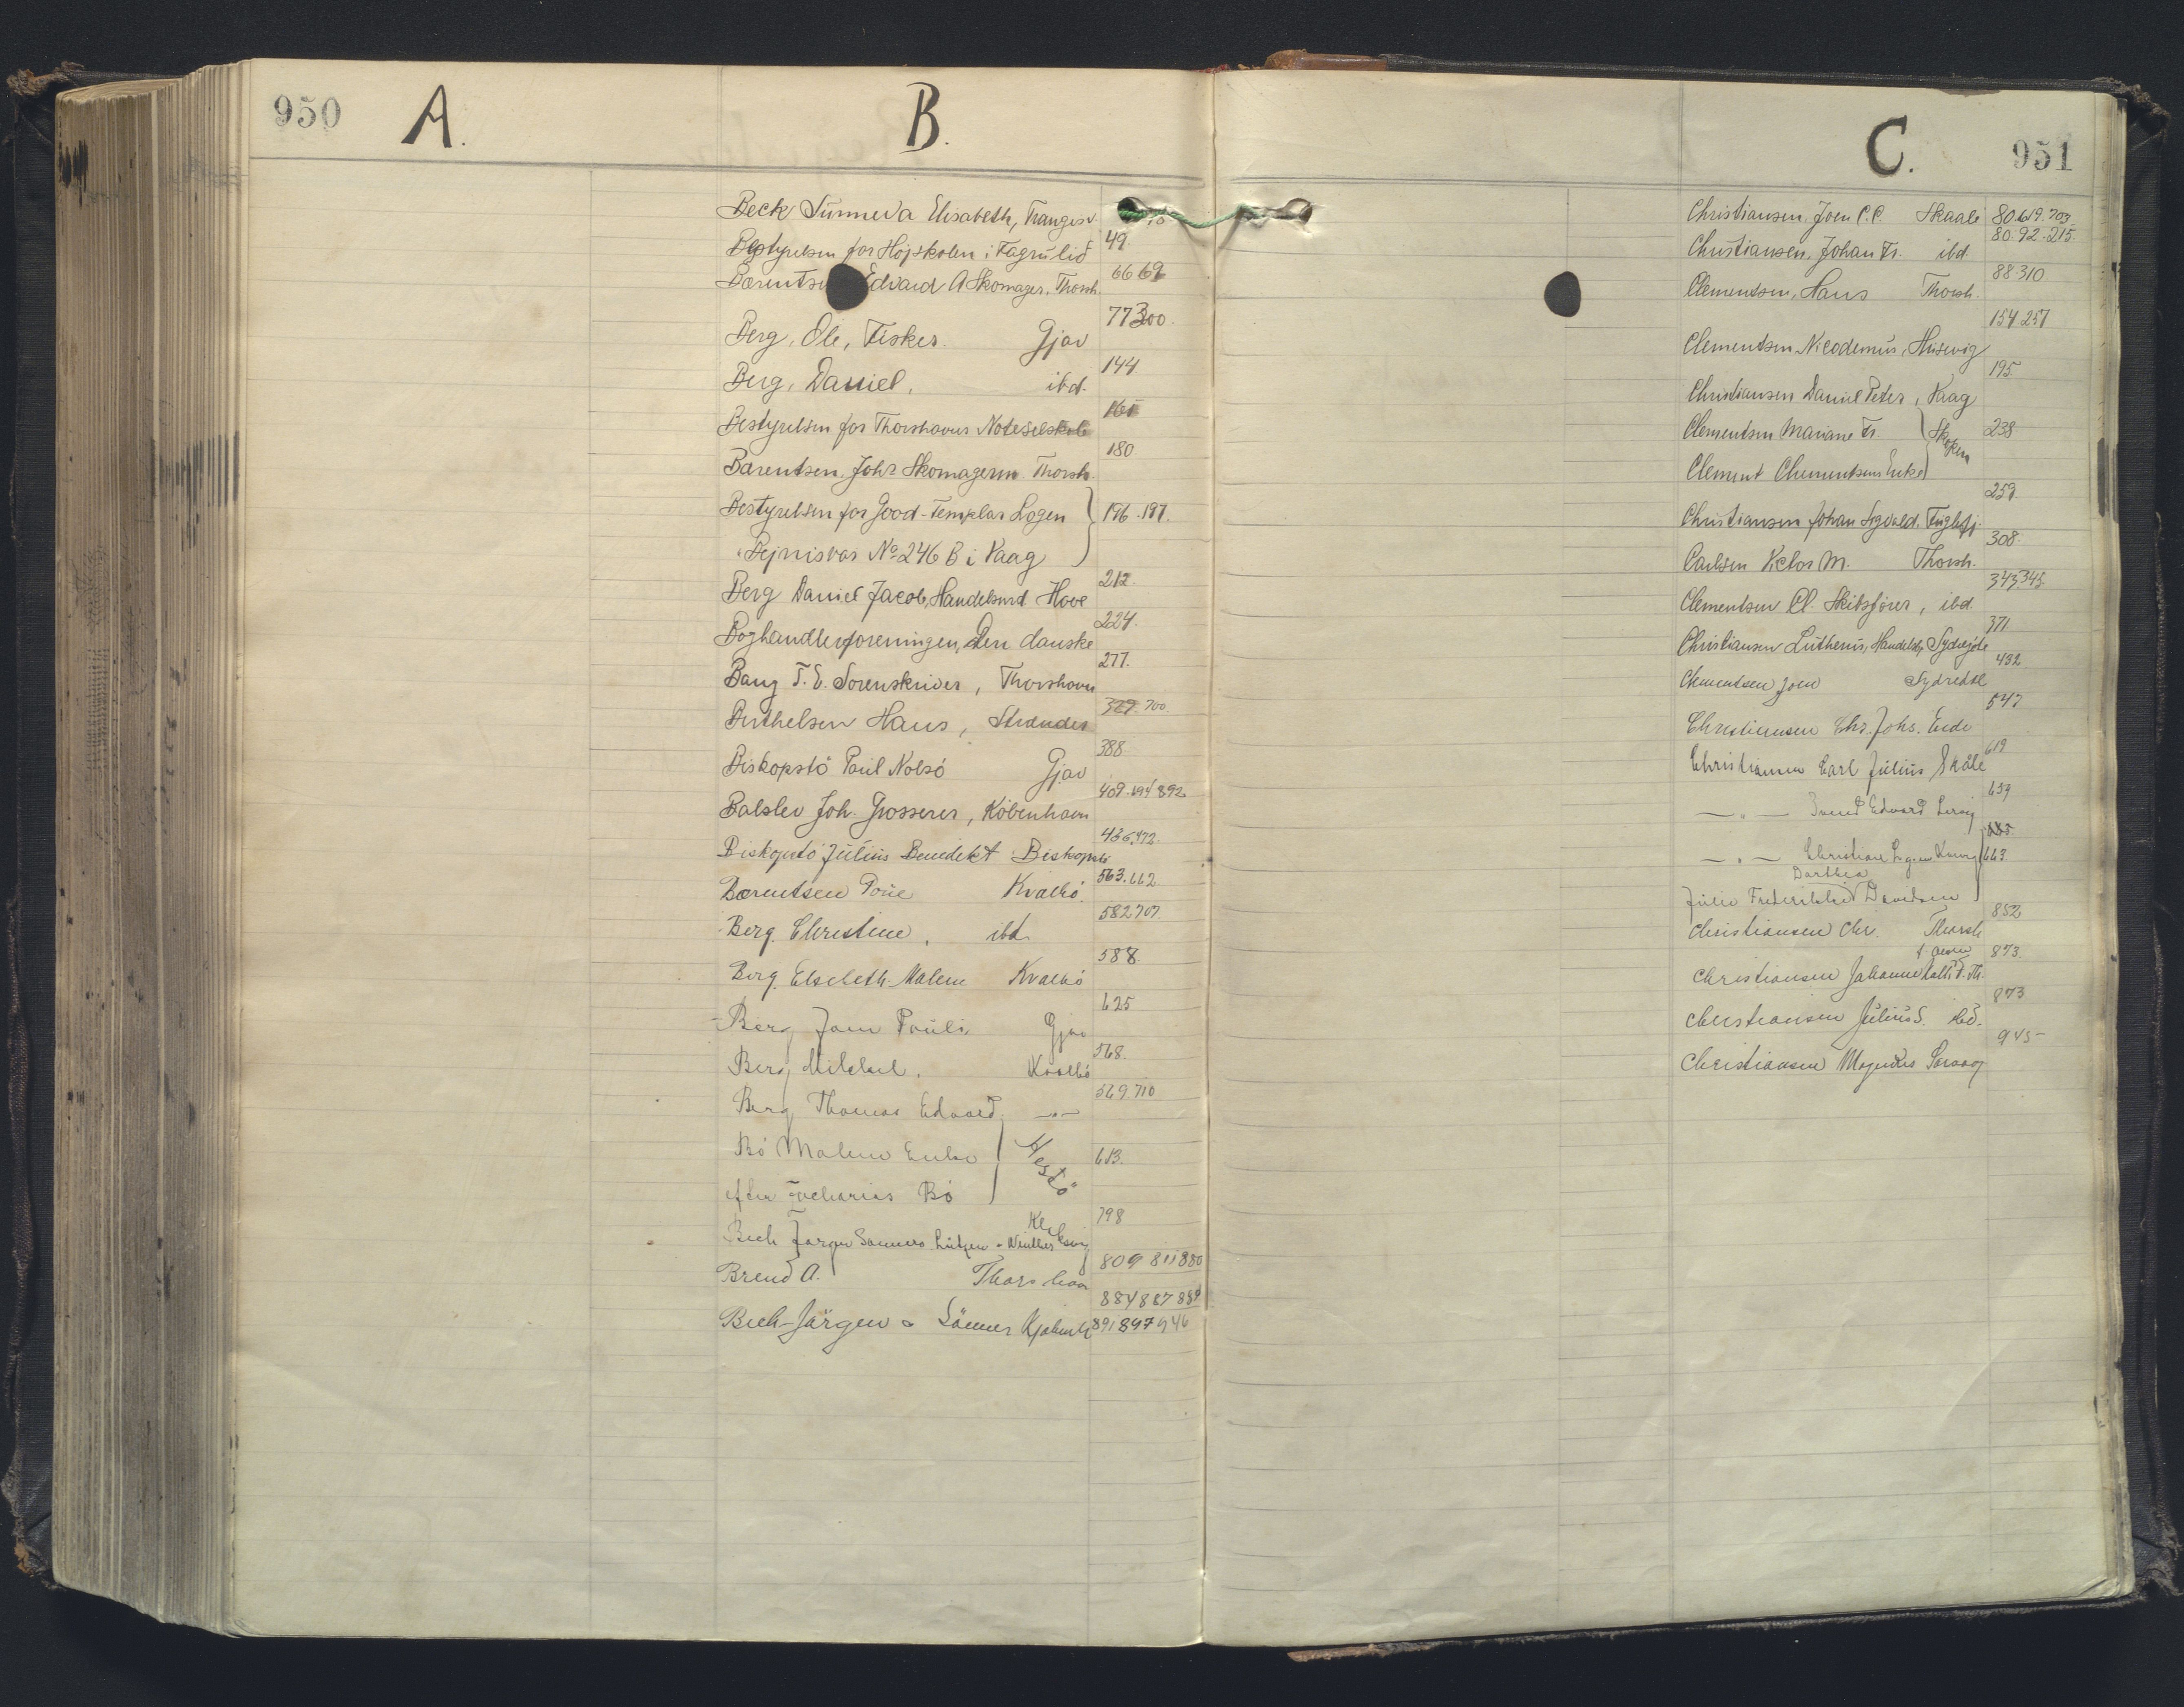 950 A. B.
Beck Sunneva Elisabeth, Trangisv. 10
Bestyrelsen for Højskolen i Fagrulid 49.
Bærentsen Edvard A Skomager, Thorsh. 66 69
Berg, Ole, Fisker. Gjov 77 300.
Berg, Daniel, ibd. 144
Bestyrelsen for Thorshavns Noteselskab 165
Bærentsen, Johs Skomagerm. Thorsh. 180
Bestyrelsen for Good-Templar Logen 196. 197.
No 246 B i Vaag
Berg Daniel Jacob, Handelsmd Hove 212.
Boghandlerforeningen, Den danske 224.
Bang T. E. Sorenskriver, Thorshavn 277.
Berthelsen Hans, Strænder 327. 700.
Biskopstö Poul Nolsö Gjov 388.
Balslev Joh. Grosserer, København 409. 694 892
Biskopstö Julius Benedikt Biskopstö 436, 472.
Bærentsen Poue Kvalbö. 563. 662
Berg. Christine, ibd. 582 707.
Berg. Elsebeth Malene Kvalbö 588.
Berg Joen Pauli Gjov 625
Berg Mikkel. Kvalbö 568.
Berg Thomas Edvard -"- 569. 710
Bö Malene Enke Hestö 613.
efter Zacharias Bö
Bech Jørgen Sønners Lützen & Winther Klaksvig 798
Brend A. Thorshavn 809 811 880
884 887 889
Bech-Jörgen & Sönner Kjøbenh 891 897 946
C. 951
Christiansen, Joen C. C. Skaale 80. 619. 703.
Christiansen, Johan Fr. ibd. 80. 92. 215.
Clementsen, Hans Thorsh. 88 310
Clementsen Nicodemus, Husevig 154. 257
Christiansen Daniel Peter, Vaag 195.
Clementsen Mariane Fr. Skopen 238
Clement Clementsens Enke
Christiansen Johan Sigvald. Fuglefj. 259.
Carlsen Victor M. Thorsh. 308.
Clementsen Cl. Skibsfører, ibd. 343. 345.
Christiansen Lutherus, Handelsb, Sydregöte 371
Clementsen Joen Sydredal 432
Christiansen Chr. Johs. Eide 547
Christiansen Carl Julius Skåle 619
-"- Svend Edvard Lervig 639
-"- Christian 663
Dorthea
Davidsen
Christiansen Chr. Thorsh 852
Christiansen Johanne 873.
Christiansen Julius S. ibd. 873
Christiansen Magnus Sørvaag 945